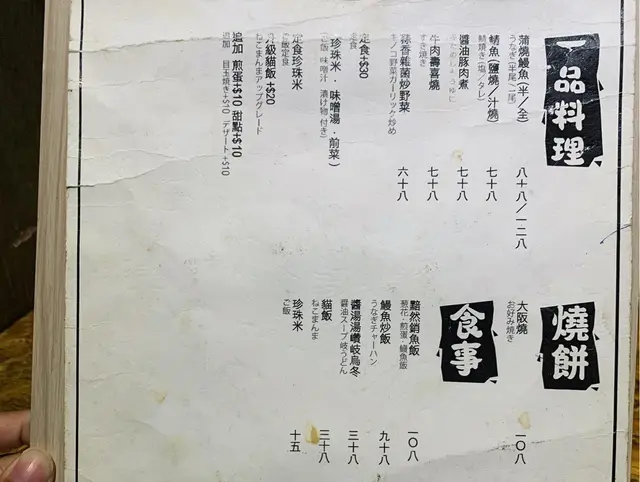 一品料理
蒲燒鰻魚(半/全) 八十八/一二八
うなぎ(半尾/一尾)
鯖魚(鹽燒/汁燒) 七十八
鯖焼き(塩/タレ)
醬油豚肉煮 七十八
牛肉壽喜燒 七十八
すき焼き
蒜香雜菌炒野菜 六十八
キノコ野菜ガーリック炒め
定食+$30
定食
(珍珠米 味噌湯・前菜)
(ご飯 味噌汁 漬け物 付き)
定食珍珠米
ご飯定食
升級貓飯+$20
ねこまんまアップグレード
追加 煎蛋+$10 甜點+$10
追加 目玉焼き+$10 デザート+$10
燒餅
大阪燒 一〇八
お好み焼き
食事
黯然銷魚飯 一〇八
葱花・煎蛋・鰻魚飯
鰻魚炒飯 九十八
うなぎチャーハン
醬湯湯讚岐烏冬 三十八
醤油スープ岐うどん
貓飯 三十八
ねこまんま
珍珠米 十五
ご飯